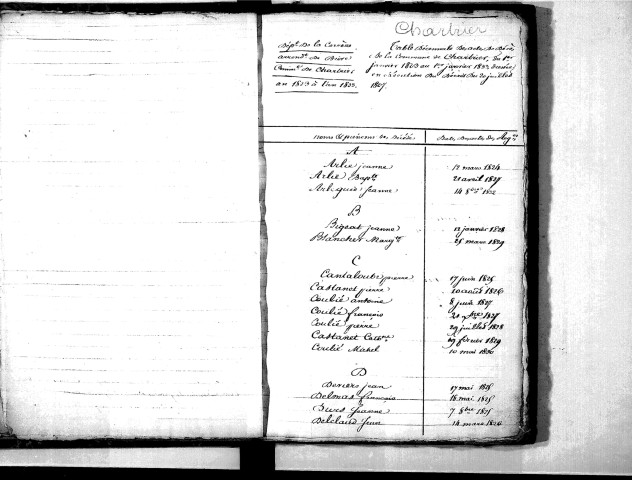 Chartrier
Dépt. De la Corrèze
arrondt. De Brive
Commne. De Chartrier
an 1823 à l'an 1832.
Table Décennale Des acte De Décès
De la Commune De Chartrier, du 1er
janvier 1823 au 1er janvier 1832 dressée
en exécution Du Décret Du 20 juillet
1807.
noms et prénoms des Décédés
Dates Des actes Des Reg.
A
Arlie jeanne 12 mars 1824
Arlie Bapte. 21 avril 1827
jeanne 14 8bre
B
Bigeat jeanne 12 janvier 1828
Blanchet Margte. 25 mars 1829
C
Cantaloube pierre 17 juin 1825
Castanet pierre 20 août 1826
Coulié antoine 8 juin 1827
Coulié françois 21 1827
Coulié pierre 29 juillet 1828
Castanet Cathne. 19 février 1829
Coulié Michel 10 mai 1830
D
jean 17 mai 1825
Delmas françoise 18 mai 1825
jeanne 7 8bre 1825
jean 14 mars 1826